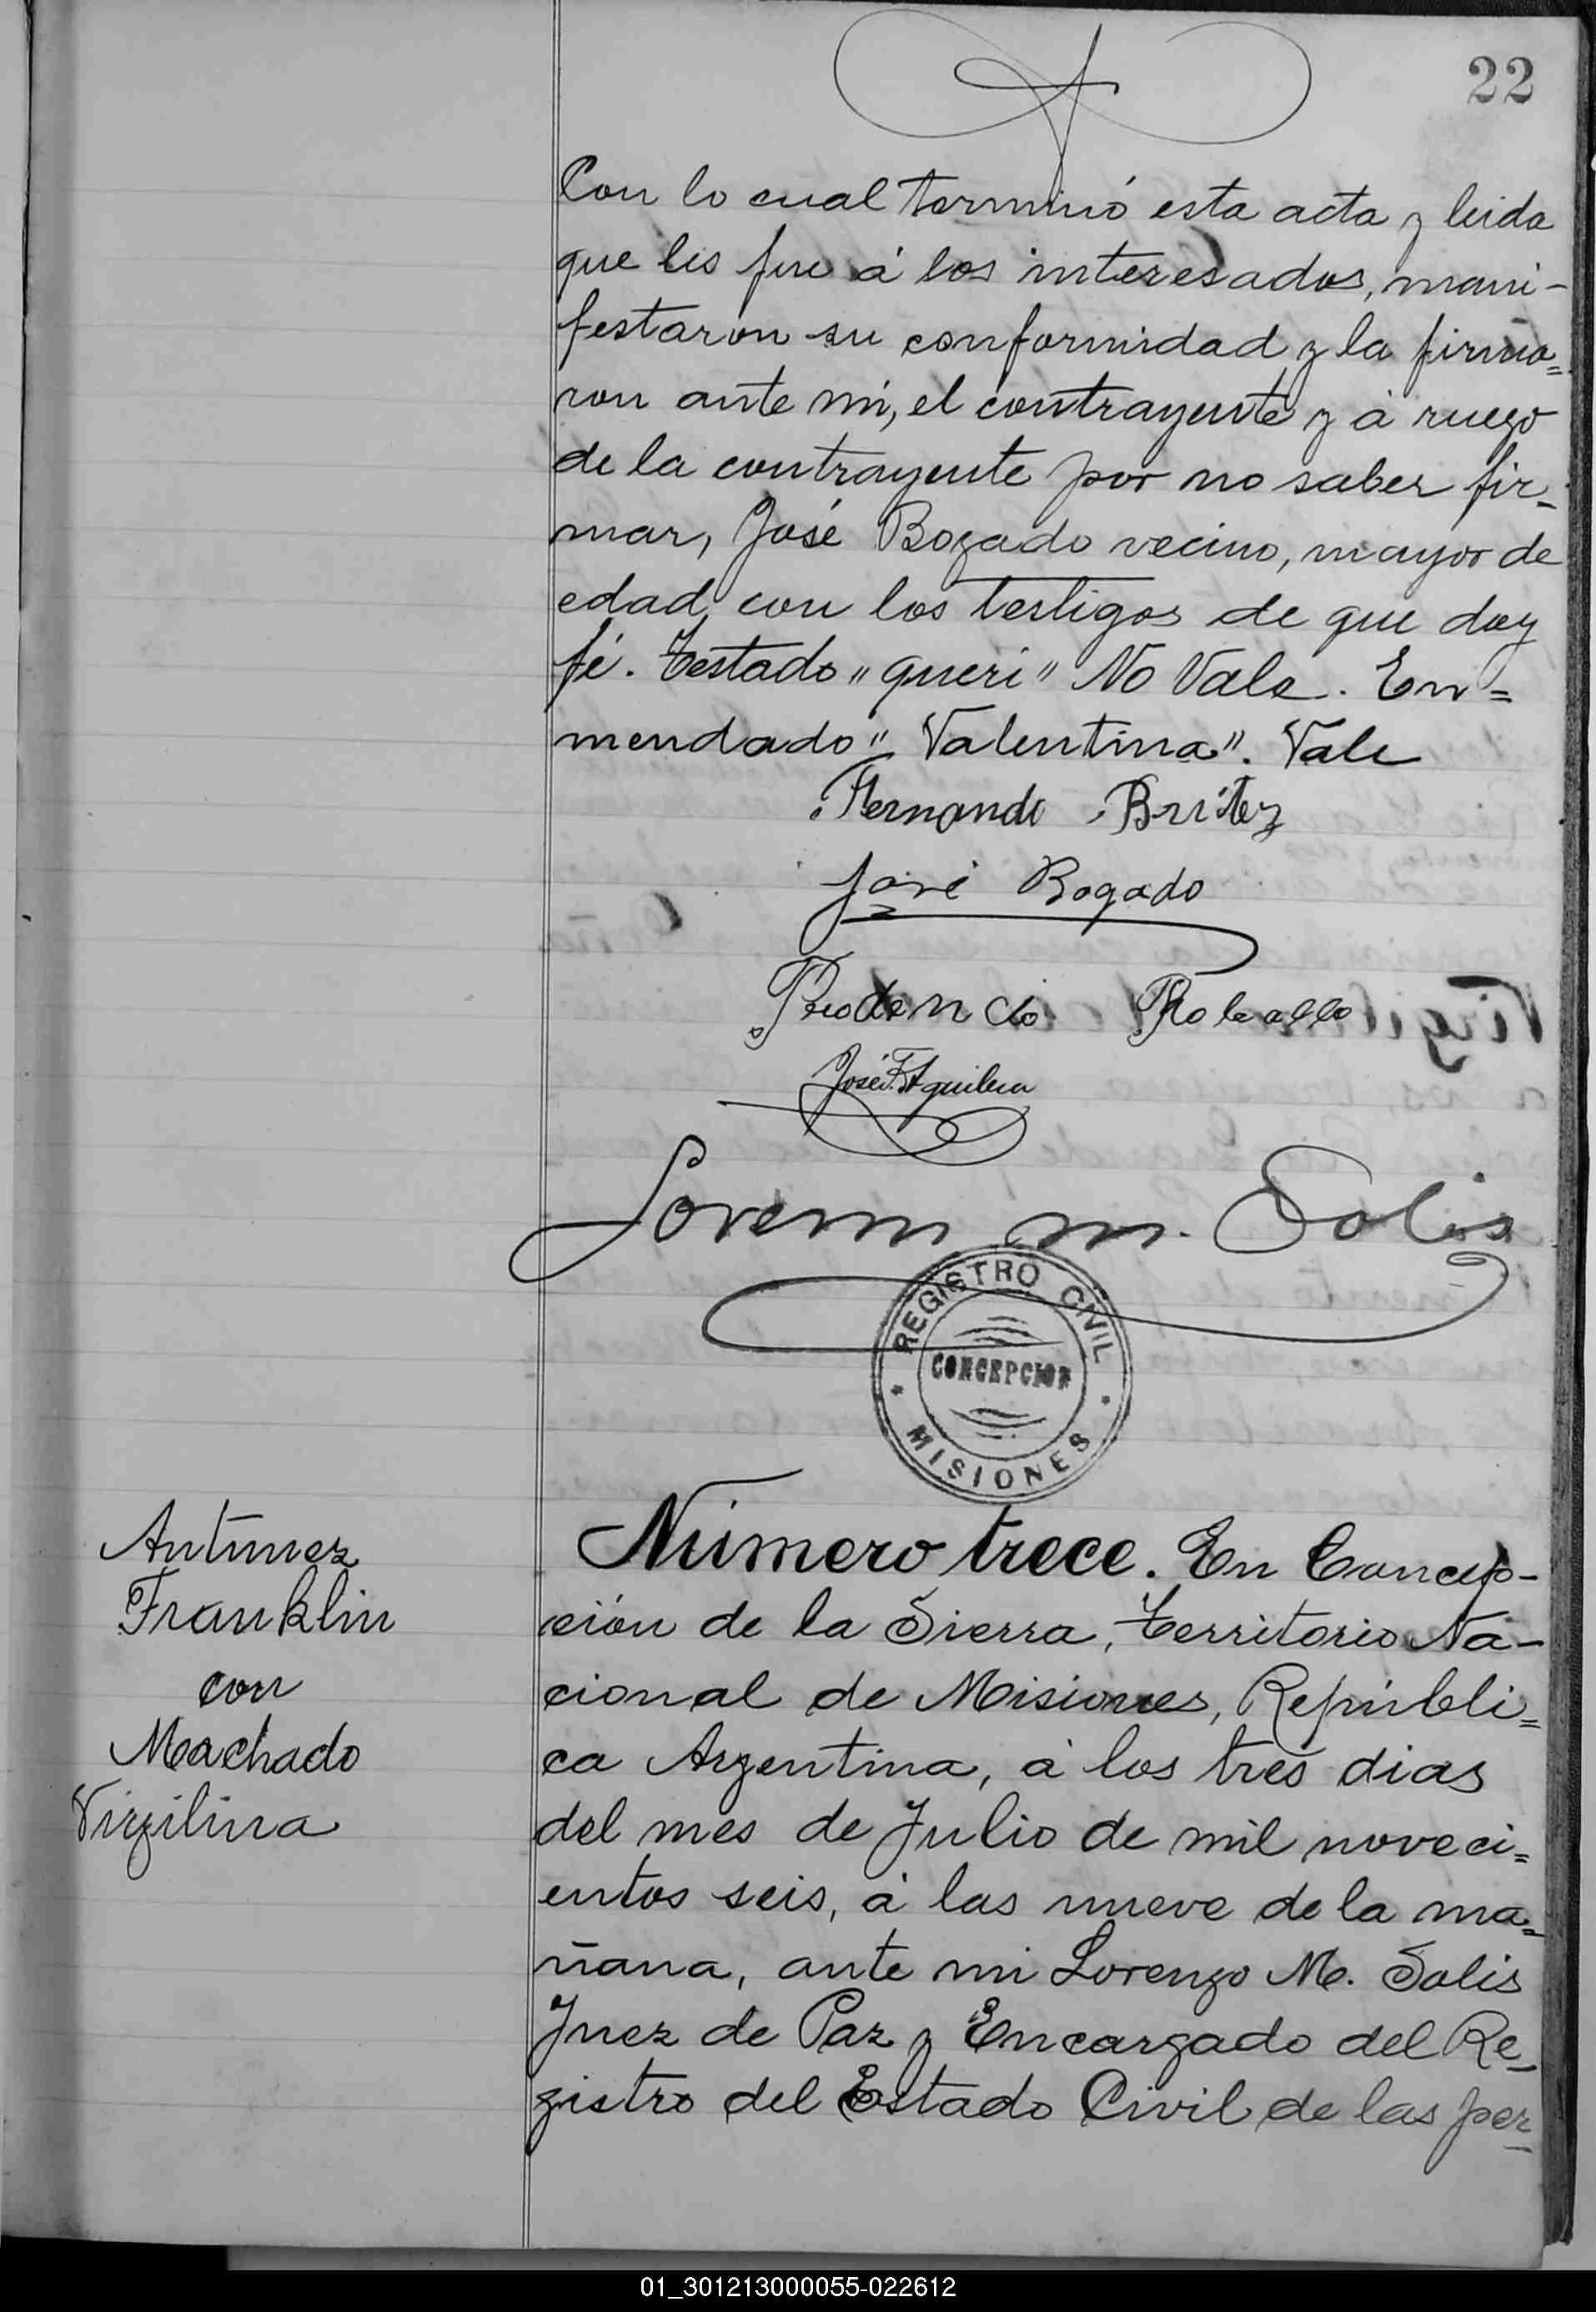 22
Con lo cual terminó esta acta y leida
que les fue á los interesados, mani-
festaron su conformidad y la firma=
ron ante mi, el contrayente y á ruego
de la contrayente por no saber fir-
mar, José Bogado vecino, mayor de
edad, con los testigos de que doy
fé. Testado "queri" No Vale. En=
mendado "Valentina". Vale
Fernando Britez
José Bogado
José F. Aguilera
Lorenzo M. Solis
REGISTRO CIVIL
CONCEPCION
MISIONES
Antunez
Franklin
con
Machado
Virgilina
Número trece. En Concep-
ción de la Sierra, Territorio Na-
cional de Misiones, Repúbli=
ca Argentina, á los tres dias
del mes de Julio de mil noveci=
entos seis, á las nueve de la ma=
ñana, ante mi Lorenzo M. Solis
Juez de Paz y Encargado del Re-
gistro del Estado Civil de las per-
01_301213000055-022612